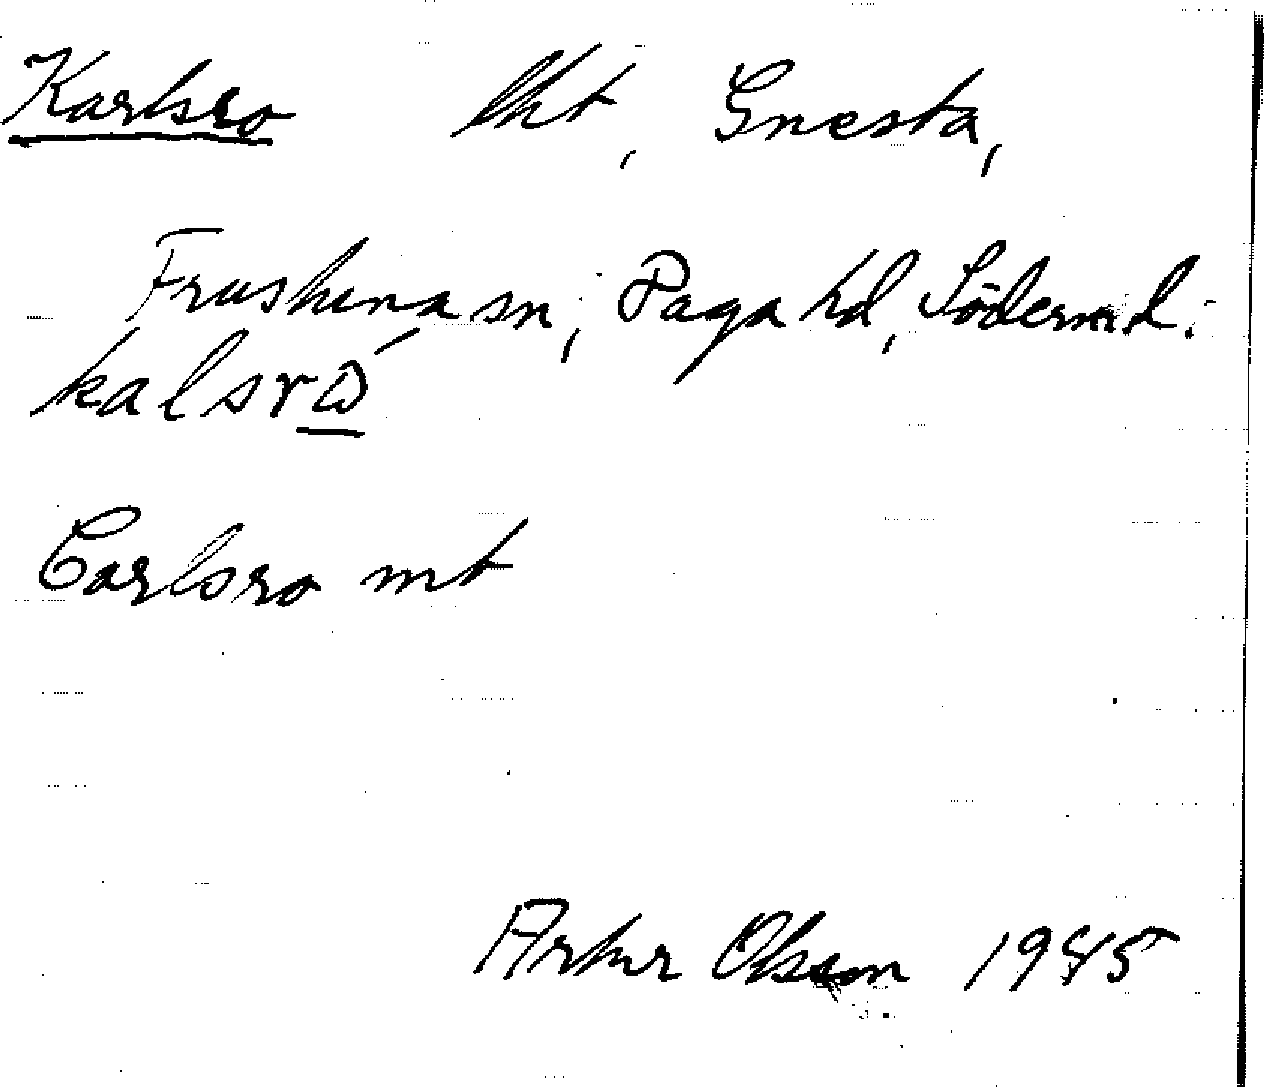 Karlsro lht, Gnesta,
Frustuna sn, Daga hd, Söderml.
kalsrω´
Carlsro mt
Artur Olsson 1945